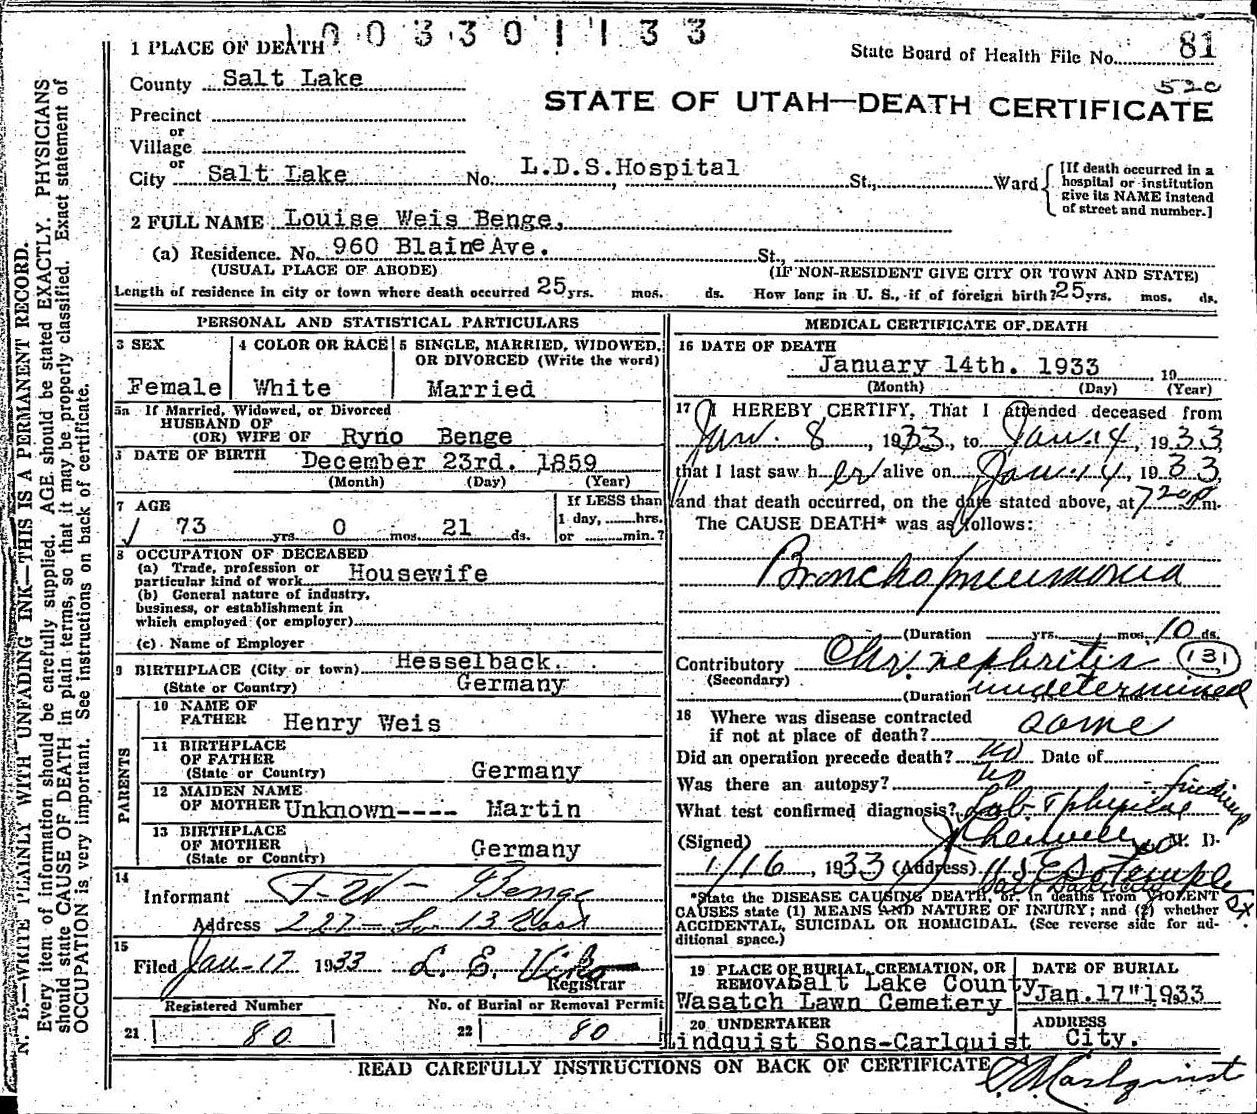 1003301133
State Board of Health File No. 81
520
STATE OF UTAH—DEATH CERTIFICATE
1 PLACE OF DEATH
County Salt Lake
Precinct
or
Village
or
City Salt Lake No. L.D.S.Hospital St., Ward
[If death occurred in a hospital or institution give its NAME instead of street and number.]
2 FULL NAME Louise Weis Benge,
(a) Residence. No. 960 Blaine Ave. St.,
(USUAL PLACE OF ABODE) (IF NON-RESIDENT GIVE CITY OR TOWN AND STATE)
Length of residence in city or town where death occurred 25 yrs. mos. ds. How long in U. S., if of foreign birth? 25 yrs. mos. ds.
PERSONAL AND STATISTICAL PARTICULARS
3 SEX
Female
4 COLOR OR RACE
White
5 SINGLE, MARRIED, WIDOWED,
OR DIVORCED (Write the word)
Married
5a If Married, Widowed, or Divorced
HUSBAND OF
(OR) WIFE OF Ryno Benge
DATE OF BIRTH December 23rd. 1859
(Month) (Day) (Year)
7 AGE
73 yrs. 0 mos. 21 ds.
If LESS than
1 day, hrs.
or min.?
8 OCCUPATION OF DECEASED
(a) Trade, profession or
particular kind of work Housewife
(b) General nature of industry,
business, or establishment in
which employed (or employer)
(c) Name of Employer
9 BIRTHPLACE (City or town) Hesselback.
(State or Country) Germany
PARENTS
10 NAME OF
FATHER Henry Weis
11 BIRTHPLACE
OF FATHER
(State or Country) Germany
12 MAIDEN NAME
OF MOTHER Unknown---- Martin
13 BIRTHPLACE
OF MOTHER
(State or Country) Germany
14
Informant F-W- Benge
Address 227- So 13 East
15
Filed Jan-17 1933 L. E. Viko
Registrar
Registered Number
21 80
No. of Burial or Removal Permit
22 80
MEDICAL CERTIFICATE OF DEATH
16 DATE OF DEATH
January 14th. 1933 , 19
(Month) (Day) (Year)
17 I HEREBY CERTIFY, That I attended deceased from
Jan. 8 , 1933, to Jan. 14, 1933,
that I last saw h er alive on Jan. 14, 1933,
and that death occurred, on the date stated above, at 720p m.
The CAUSE DEATH* was as follows:
Bronchopneumonia
(Duration yrs. mos. 10 ds.
Contributory Chr. nephritis 131
(Secondary)
(Duration undetermined ds.
18 Where was disease contracted
if not at place of death? same
Did an operation precede death? no Date of
Was there an autopsy? no
What test confirmed diagnosis? Lab. & physical findings
(Signed) M. D.
1/16, 1933 (Address) E So Temple St
Salt Lake City
*State the DISEASE CAUSING DEATH, or, in deaths from VIOLENT
CAUSES state (1) MEANS AND NATURE OF INJURY; and (2) whether
ACCIDENTAL, SUICIDAL OR HOMICIDAL. (See reverse side for ad-
ditional space.)
19 PLACE OF BURIAL, CREMATION, OR
REMOVAL Salt Lake County
Wasatch Lawn Cemetery
DATE OF BURIAL
Jan.17"1933
20 UNDERTAKER
Lindquist Sons-Carlquist
ADDRESS
City.
READ CAREFULLY INSTRUCTIONS ON BACK OF CERTIFICATE
N. B.—WRITE PLAINLY WITH UNFADING INK—THIS IS A PERMANENT RECORD.
Every item of information should be carefully supplied. AGE should be stated EXACTLY. PHYSICIANS
should state CAUSE OF DEATH in plain terms, so that it may be properly classified. Exact statement of
OCCUPATION is very important. See instructions on back of certificate.